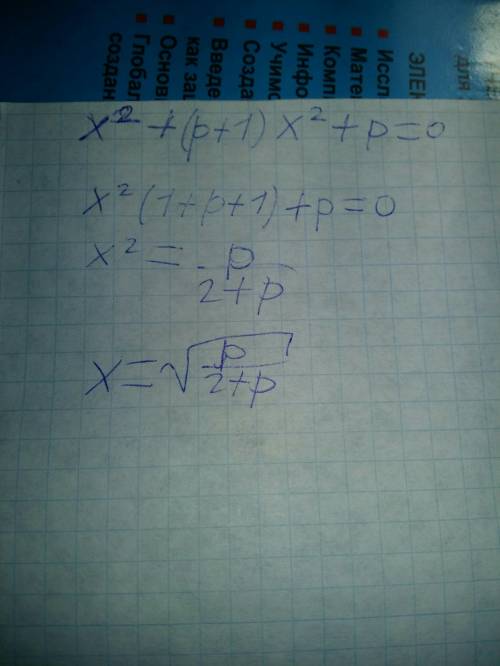 для
ЭЛЕК
Иссл
Мате
Комп
Инфо
Учимс
Созда
Введе
как за
Основ
Глобал
создан
x² + (p+1) x² + p = 0
x² (1+p+1) + p = 0
x² = p / 2+p
x = √(p / 2+p)